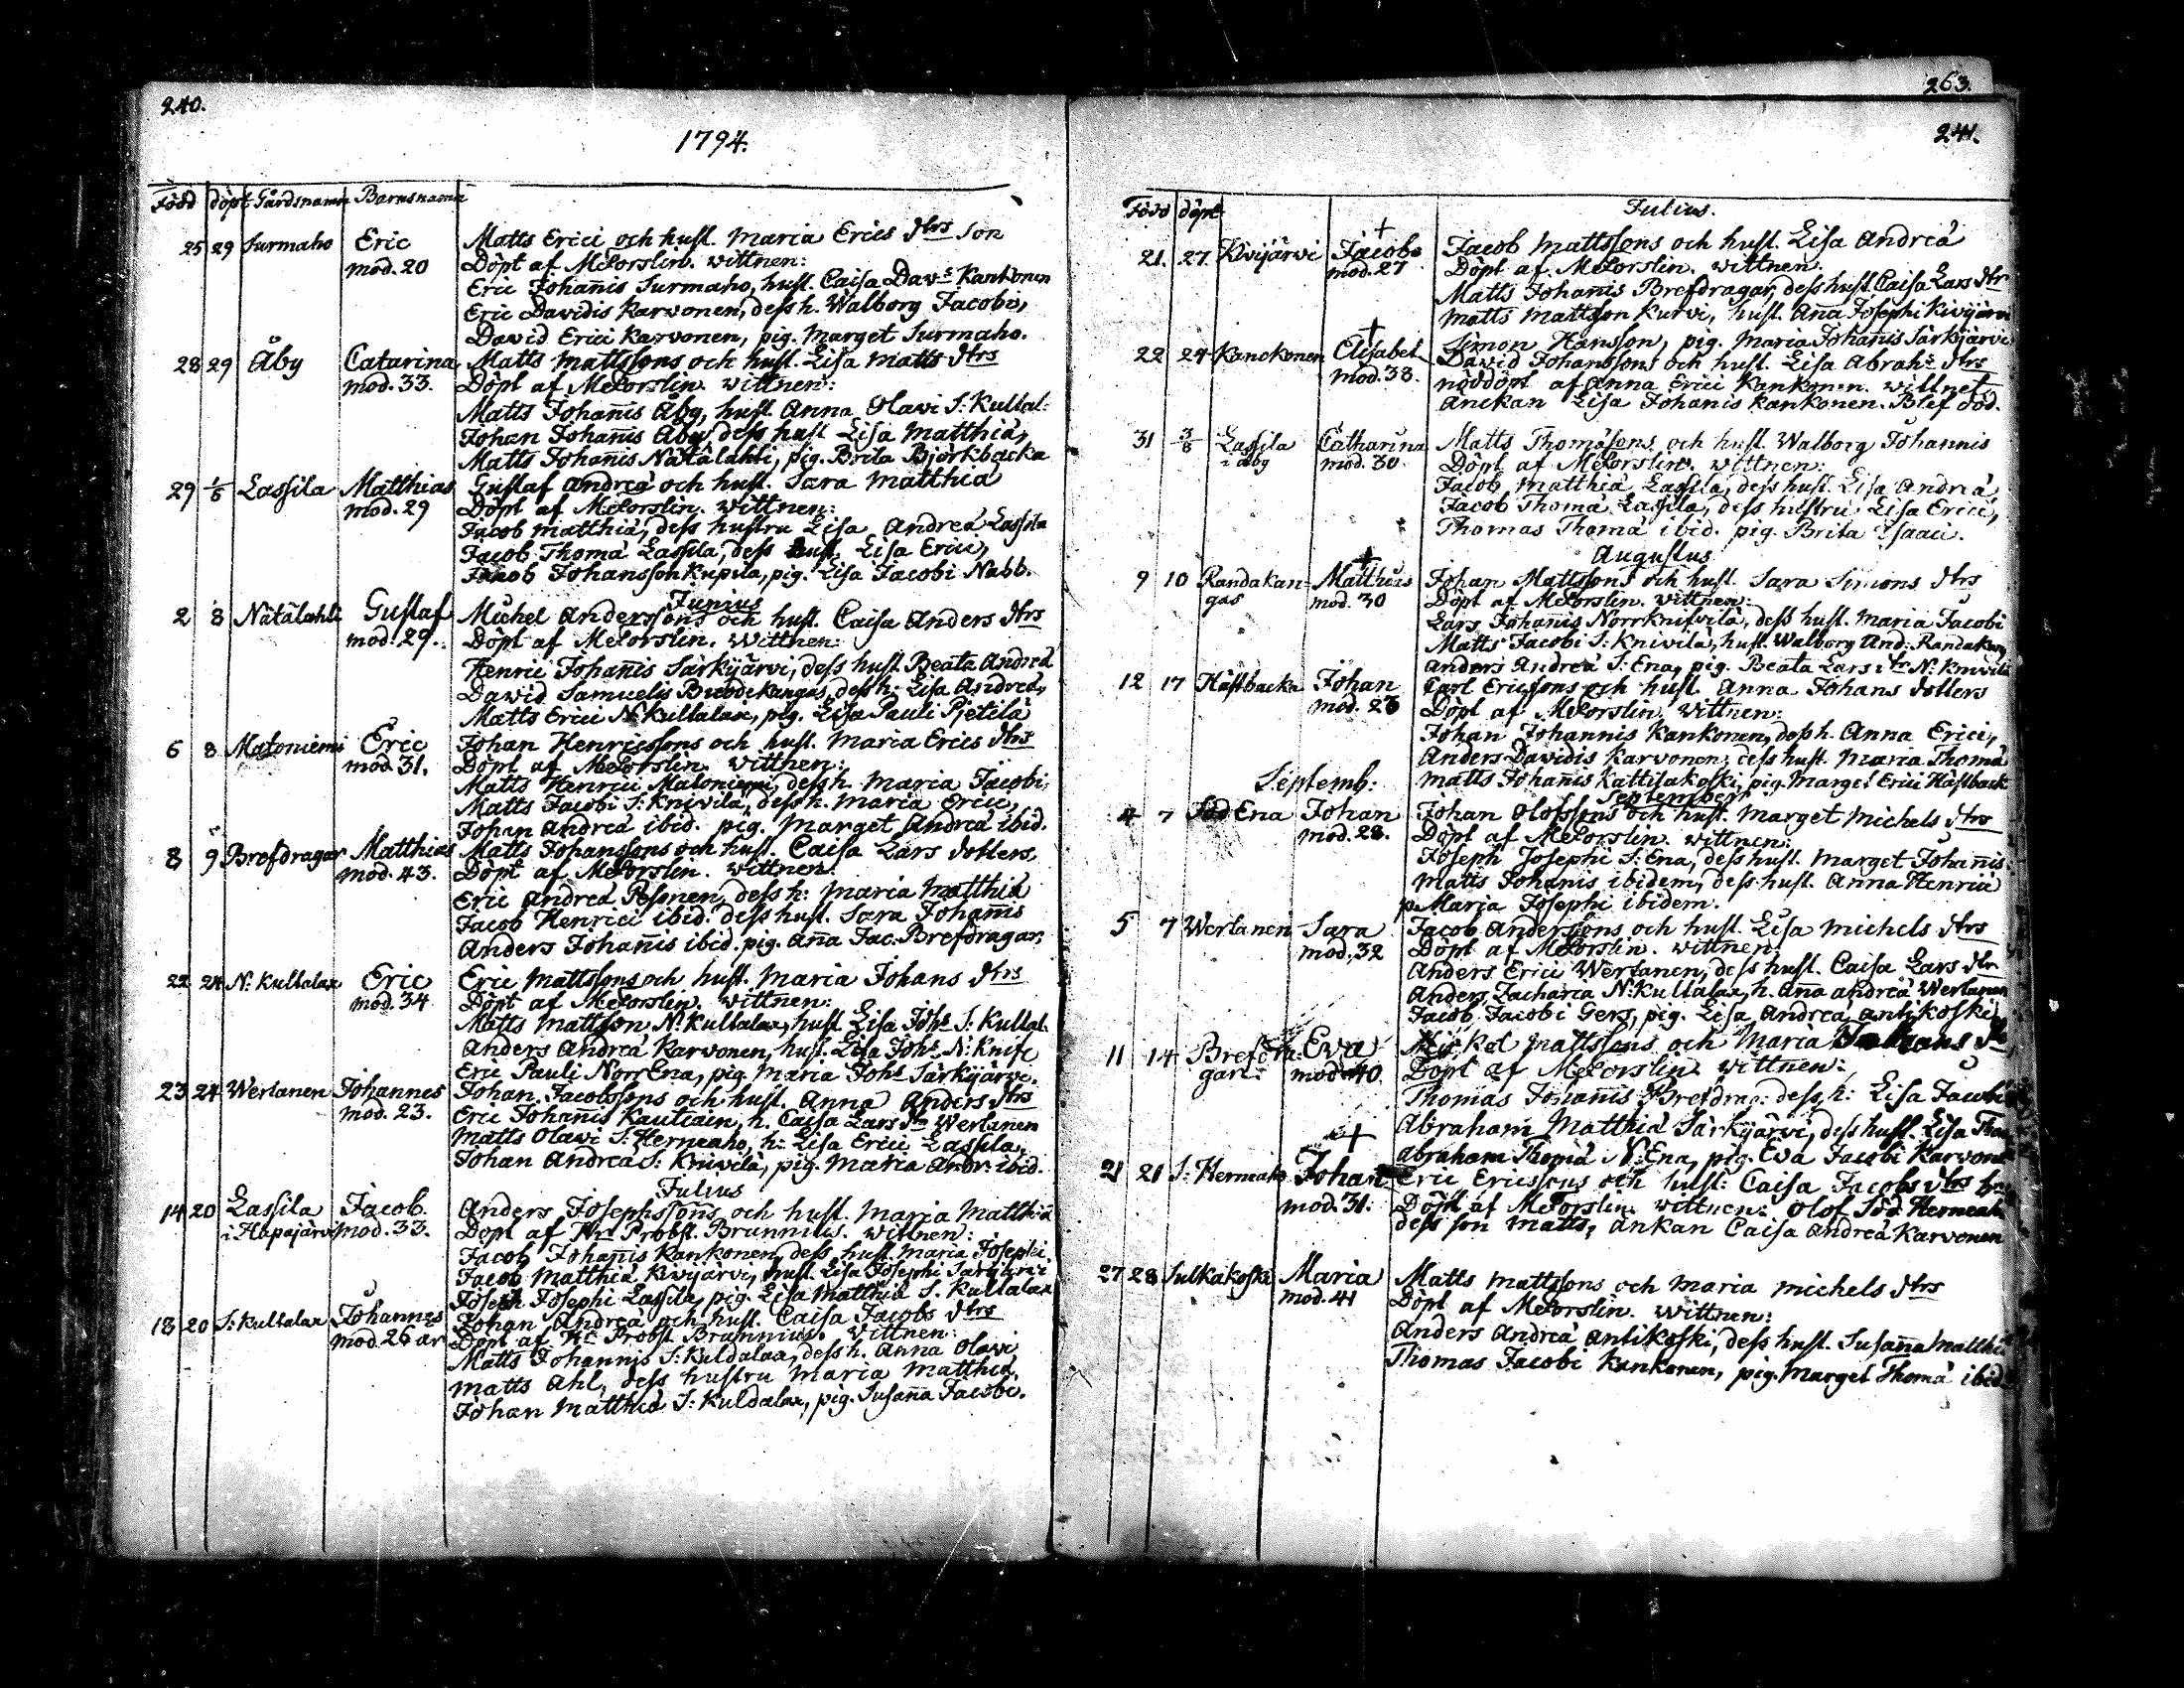 240.
1794.
Född döpt Gårdsnamn Barnsnamn
25 29 Surmaho Eric Matts Erici och hust. Maria Erics dtrs Son
mod. 20 Döpt af McForslin. wittnen:
Eric Johan̄is Surmaho, hust. Caisa Davs Kankonen
Eric Davidis Karvonen, dess h. Walborg Jacobi,
David Erici Karvonen, pig. Marget Surmaho.
28 29 Åby Catarina Matts Mattssons och hust. Lisa Matts dtrs
mod. 33. Döpt af McForslin. wittnen:
Matts Johan̄is Åby, hust. Anna Olavi S: Kullal:
Johan Johan̄is Åby, dess hust Lisa Matthiä,
Matts Johan̄is Nätälahti, pig. Brita Björkbacka
29 1/6 Lassila Matthias Gustaf Andreä och hust. Sara Matthiä
mod. 29 Döpt af McForslin. wittnen:
Jacob Matthiä, dess hustru Lisa Andreä Lassila
Jacob Thomä Lassila, dess hust. Lisa Erici,
Jacob Johansson Kupila, pig. Lisa Jacobi Nabb.
Junius
2 8 Nätälahti Gustaf Michel Anderssons och hust. Caisa Anders dtrs
mod. 29. Döpt af McForslin. wittnen:
Henric Johan̄is Särkijärvi, dess hust. Beata Andreä
David Samuelis dess h. Lisa Andreä,
Matts Erici N. Kullalax, pig. Lisa Pauli Pjetilä
6 8 Matoniemi Eric Johan Henricssons och hust. Maria Erics dtrs
mod. 31. Döpt af McForslin. wittnen:
Matts Henrici Matoniemi, dess h. Maria Jacobi,
Matts Jacobi S: Knivilä, dess h. Maria Erici,
Johan Andreä ibid. pig. Marget Andreä ibid.
8 9 Brefdragar Matthias Matts Johanssons och hust. Caisa Lars dotters
mod. 43. Döpt af McForslin. wittnen:
Eric Andreä Pesonen, dess h: Maria Matthiä
Jacob Henrici ibid. dess hust. Sara Johan̄is
Anders Johan̄is ibid. pig. An̄a Jac: Brefdragar.
22 24 N: Kullalax Eric Eric Mattssons och hust. Maria Johans dtrs
mod. 34 Döpt af McForslin. wittnen:
Matts Mattsson N. Kullalax, hust. Lisa Johs S: Kullal.
Anders Andreä Karvonen, hust. Lisa Johs N: Knife
Eric Pauli NorrEna, pig. Maria Johs Särkijärvi.
23 24 Wertanen Johannes Johan Jacobssons och hust. Anna Anders dtrs
mod. 23. Eric Johan̄is Kautiain, h. Caisa Lars Wertanen
Matts Olavi S: Hermaho, h: Lisa Erici Lassila,
Johan Andreä S: Knivilä, pig. Maria Andr. ibid.
Julius
14 20 Lassila Jacob Anders Josephssons och hust. Maria Matthiä
i Hapajärvi mod. 33. Döpt af Hr Probst. Brunnius. wittnen:
Jacob Johan̄is Kankonen, dess hust. Maria Josephi
Jacob Matthiä Kivijärvi, hust. Lisa Josephi Särkijärvi
Joseph Josephi Lassila, pig. Lisa Matthiä S. Kullalax
18 20 S: Kullalax Johannes Johan Andreä och hust. Caisa Jacobs dtrs
mod 26 år Döpt af Hr Probst Brunnius. wittnen:
Matts Johannis S: Kuldalax, dess h. Anna Olavi
Matts Ahl, dess hustru Maria Matthiä,
Johan Matthiä S: Kuldalax, pig. Susan̄a Jacobi.
263.
241.
Född döpt Julius.
21. 27. Kivijärvi Jacob Jacob Mattssons och hust. Lisa Andreä
mod. 27 Döpt af McForslin. wittnen.
Matts Johan̄is Brefdragar, dess hust. Caisa Lars dtr
Matts Mattsson Kurvi, hust. An̄a Josephi Kivijärvi
Simon Hansson, pig. Maria Johan̄is Särkijärvi
22 24 Kanckonen Elisabet David Johanssons och hust. Lisa Abrahs dtrs
mod. 38. nöddöpt af Anna Erici Kankonen. wittnet
änckan Lisa Johanis Kankonen. Blef död.
31 3/8 Lassila Catharina Matts Thomäsons och hust. Walborg Johannis
i åby mod. 30. Döpt af McForslin. wittnen:
Jacob Matthiä Lassila, dess hust. Lisa Andreä,
Jacob Thomä Lassila, dess hustru Lisa Erici,
Thomas Thomä ibid. pig. Brita Isaaci.
Augustus
9 10 Randakan- Matthias Johan Mattssons och hust. Sara Simons dtrs
gas mod. 30 Döpt af McForslin. wittnen:
Lars Johanis Norrknifvilä, dess hust. Maria Jacobi
Matts Jacobi S: Knivilä, hust. Walborg And: Randakang
Anders Andreä S: Ena, pig. Beata Lars N: Knivilä
12 17 Hästbacka Johan Carl Ericssons och hust. Anna Johans dotters
mod. 26 Döpt af McForslin. wittnen:
Johan Johannis Kankonen, dess h. Anna Erici,
Anders Davidis Karvonen, dess hust. Maria Thomä
Matts Johan̄is Kattilakoski, pig. Marget Erici Hästback
Septemb: September
4 7 Söd Ena Johan Johan Olofssons och hust. Marget Michels dtrs
mod. 28. Döpt af McForslin. wittnen:
Joseph Josephi S: Ena, dess hust. Marget Johan̄is
Matts Johanis ibidem, dess hust. Anna Henrici
p. Maria Josephi ibidem.
5 7 Wertanen Sara Jacob Anderssons och hust. Lisa Michels dtrs
mod. 32 Döpt af McForslin. wittnen:
Anders Erici Wertanen, dess hust. Caisa Lars dtr
Anders Zacharia N: Kullalax, h. An̄a Andreä Wertanen
Jacob Jacobi Gers, pig. Lisa Andreä Antikoski
11 14 Brefdra- Eva Mickel Mattssons och Maria
gar: mod. 40. Döpt af McForslin. wittnen:
Thomas Johan̄is Brefdrag: dess h: Lisa Jacobi
Abraham Matthiä Särkijärvi, dess hust. Lisa
Abraham Thomä N: Ena, pig. Eva Jacobi Karvonen
21 21 S: Hermaho Johan Eric Ericssons och hust: Caisa Jacobs dtrs
mod. 31. Döpt af McForslin. wittnen: Olof Söd. Hermaho
dess son Matts, änkan Caisa Andreä Karvonen
27 28 Sulkakoski Maria Matts Mattssons och Maria Michels dtrs
mod. 41 Döpt af McForslin. wittnen:
Anders Andreä Antikoski, dess hust. Susan̄a Matthi
Thomas Jacobi Kankonen, pig. Marget Thomä ibid.